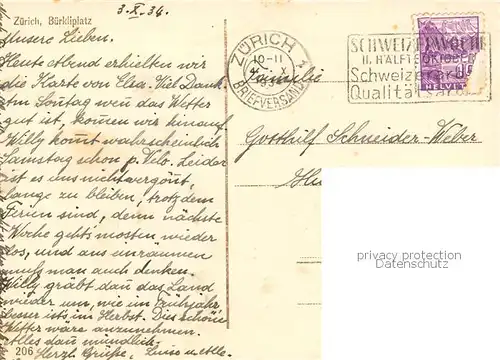 Zürich, Bürkliplatz
3. X. 34.
Unsere Lieben.
Heute Abend erhielten wir
die Karte von Elsa. Viel Dank
Am Sonntag wen das Wetter
gut ist, kommen wir hinauf
Willy kommt wahrscheinlich
Samstag schon p. Velo. Leider
ist es uns nicht vergönt,
lange zu bleiben, trotzdem
Ferien sind, denn nächste
Woche gehts mosten wieder
los, und ans einräumen
muss man auch denken.
Willy gräbt dan das Land
wieder um, wie im Frühjahr
besser ists im Herbst. Dies schöne
Wetter wäre anzunehmen.
alles dan mündlich.
Herzl. Grüsse,
206
ZÜRICH 1
10-11
BRIEFVERSAND
SCHWEIZERWOCHE
II. HÄLFTE OKTOBER
Schweizerarbeit
Qualitätsarbeit
HELVETIA
Familie
Gotthilf Schneider-Weber
privacy protection
Datenschutz